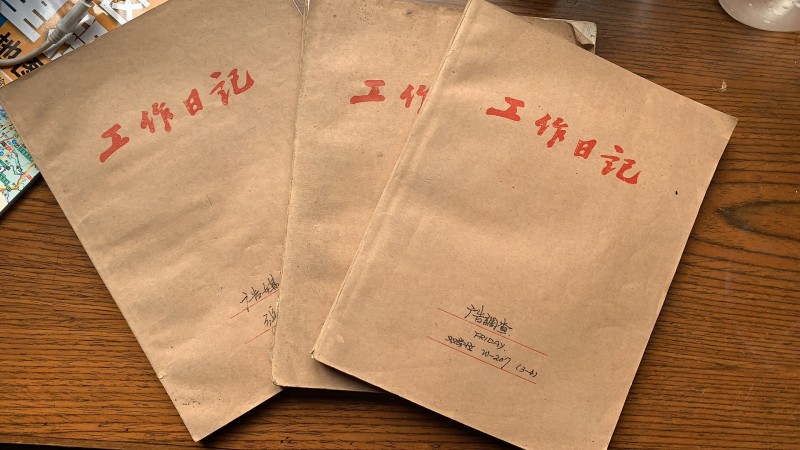 工作日記
广告媒
張
工作
工作日記
广告調查
FRIDAY
10-207 (3-4)